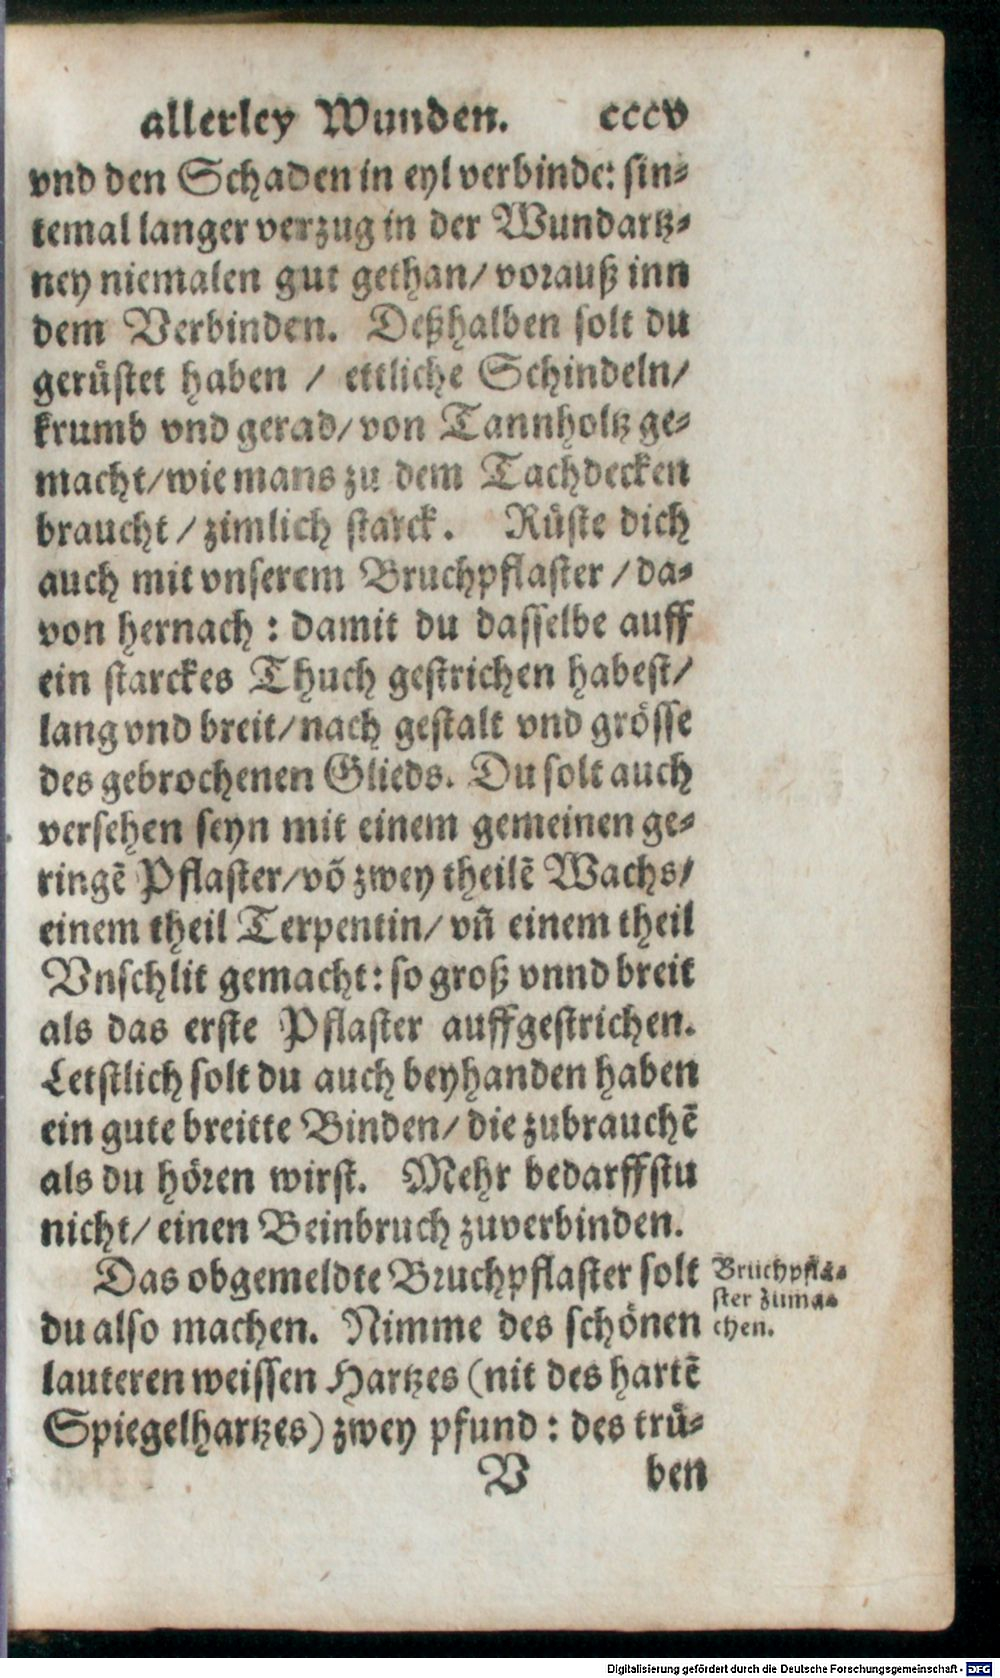 allerley Wunden. cccv
vnd den Schaden in eyl verbinde: sin-
temal langer verzug in der Wundartz-
ney niemalen gut gethan/ vorauß inn
dem Verbinden. Deßhalben solt du
gerüstet haben / ettliche Schindeln/
krumb vnd gerad/ von Tannholtz ge-
macht/ wie mans zu dem Tachdecken
braucht / zimlich starck. Rüste dich
auch mit vnserem Bruchpflaster / da-
von hernach : damit du dasselbe auff
ein starckes Thuch gestrichen habest/
lang vnd breit/ nach gestalt vnd grösse
des gebrochenen Glieds. Du solt auch
versehen seyn mit einem gemeinen ge-
ringē Pflaster/ võ zwey theilē Wachs/
einem theil Terpentin/ vñ einem theil
Vnschlit gemacht: so groß vnnd breit
als das erste Pflaster auffgestrichen.
Letstlich solt du auch beyhanden haben
ein gute breitte Binden/ die zubrauchē
als du hören wirst. Mehr bedarffstu
nicht/ einen Beinbruch zuverbinden.
Das obgemeldte Bruchpflaster solt
du also machen. Nimme des schönen
lauteren weissen Hartzes (nit des hartē
Spiegelhartzes) zwey pfund : des trü-
V ben
Bruchpfla-
ster zuma-
chen.
Digitalisierung gefördert durch die Deutsche Forschungsgemeinschaft - DFG